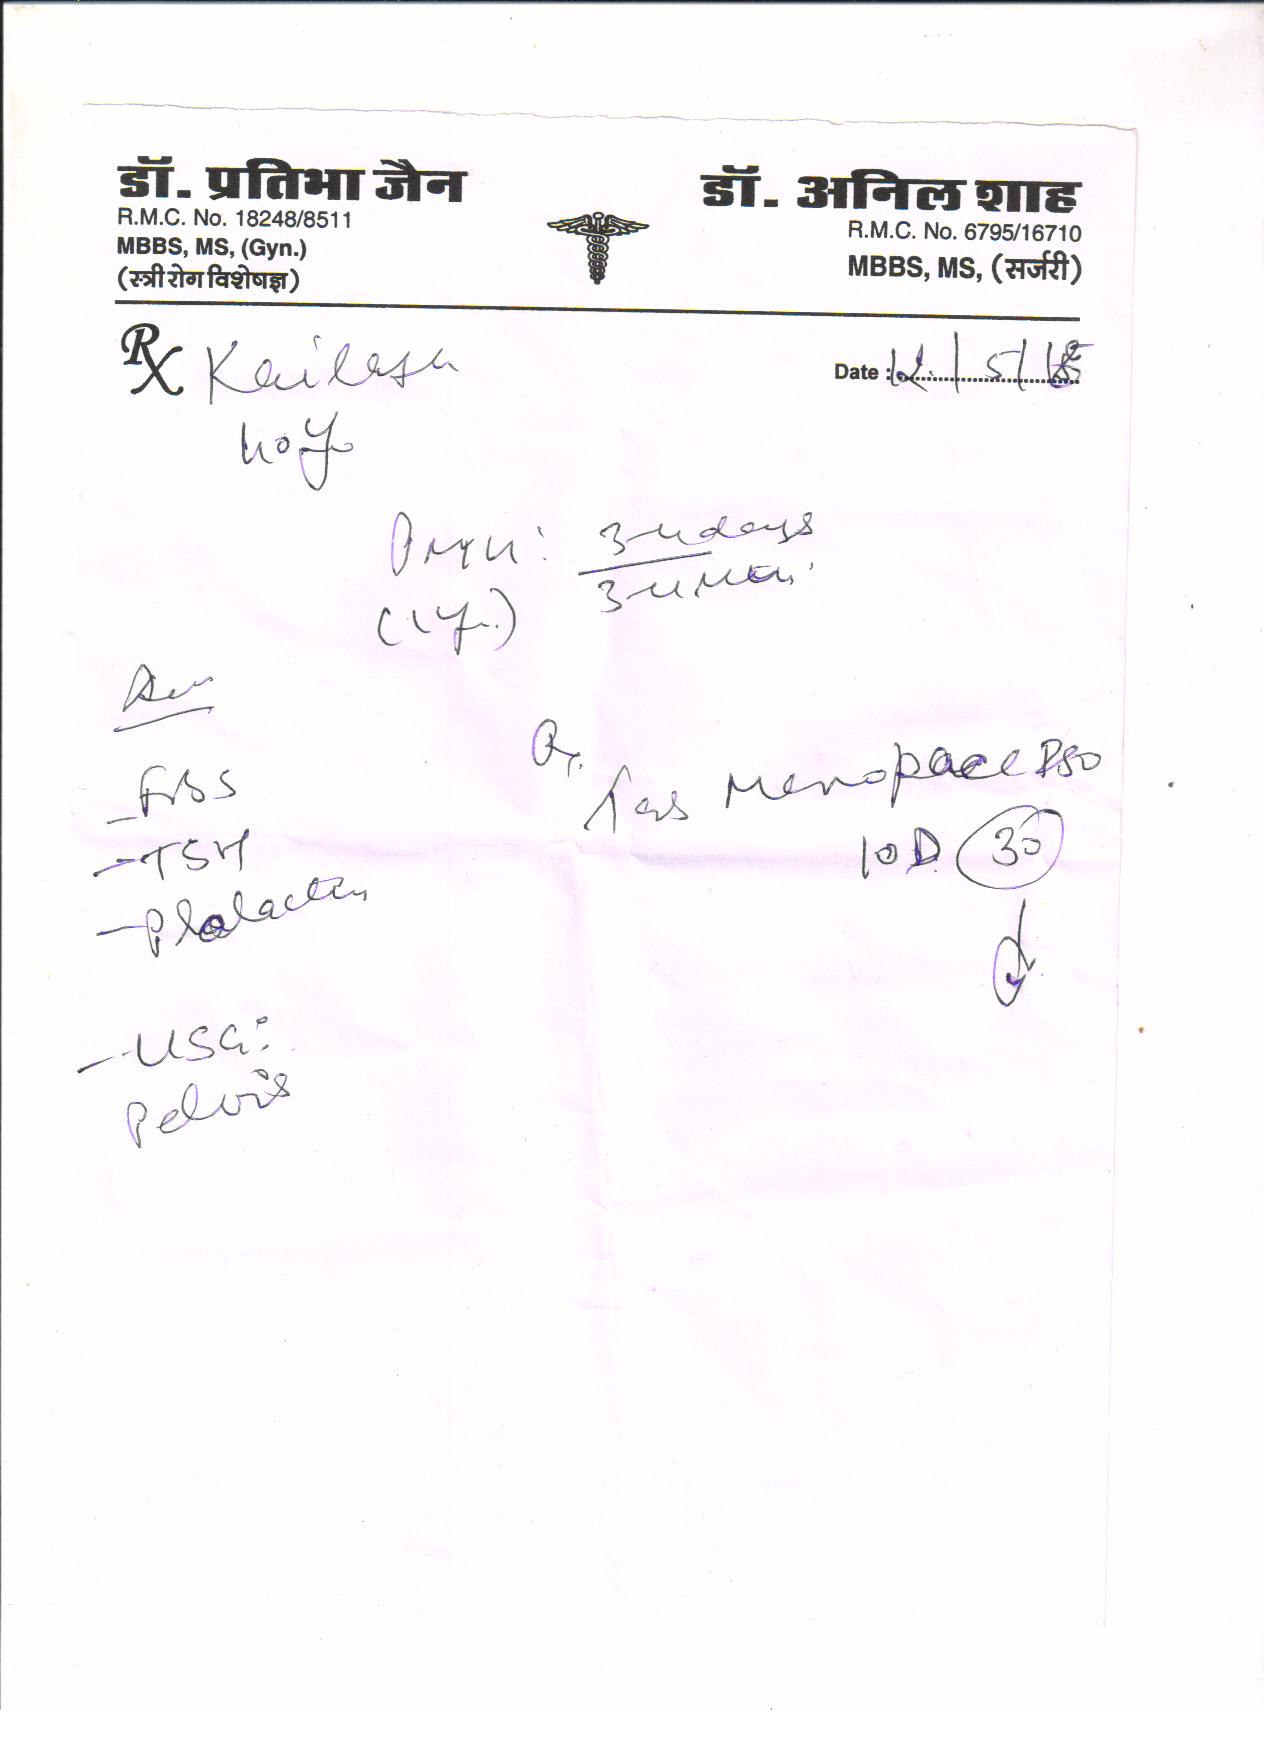 डॉ. प्रतिभा जैन
R.M.C. No. 18248/8511
MBBS, MS, (Gyn.)
(स्त्री रोग विशेषज्ञ)
डॉ. अनिल शाह
R.M.C. No. 6795/16710
MBBS, MS, (सर्जरी)
Rx Kailash
Date : 12/5/18
40 y
3-4 days
(1 yr.)
- FBS
- TSH
- Prolactin
- USG:
Pelvis
Rx
Tab Menopace ISO
10D 30